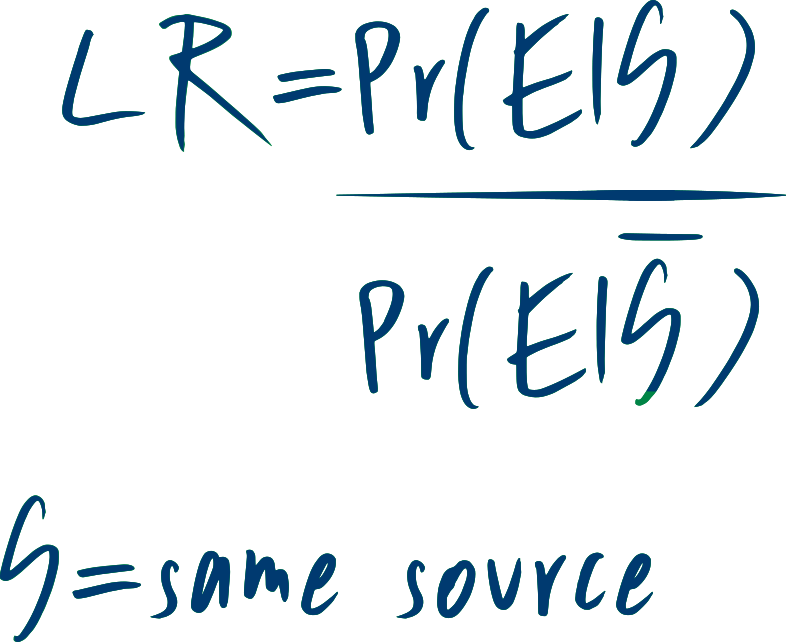 LR=Pr(E|S)
Pr(E|S̅)
S=same source